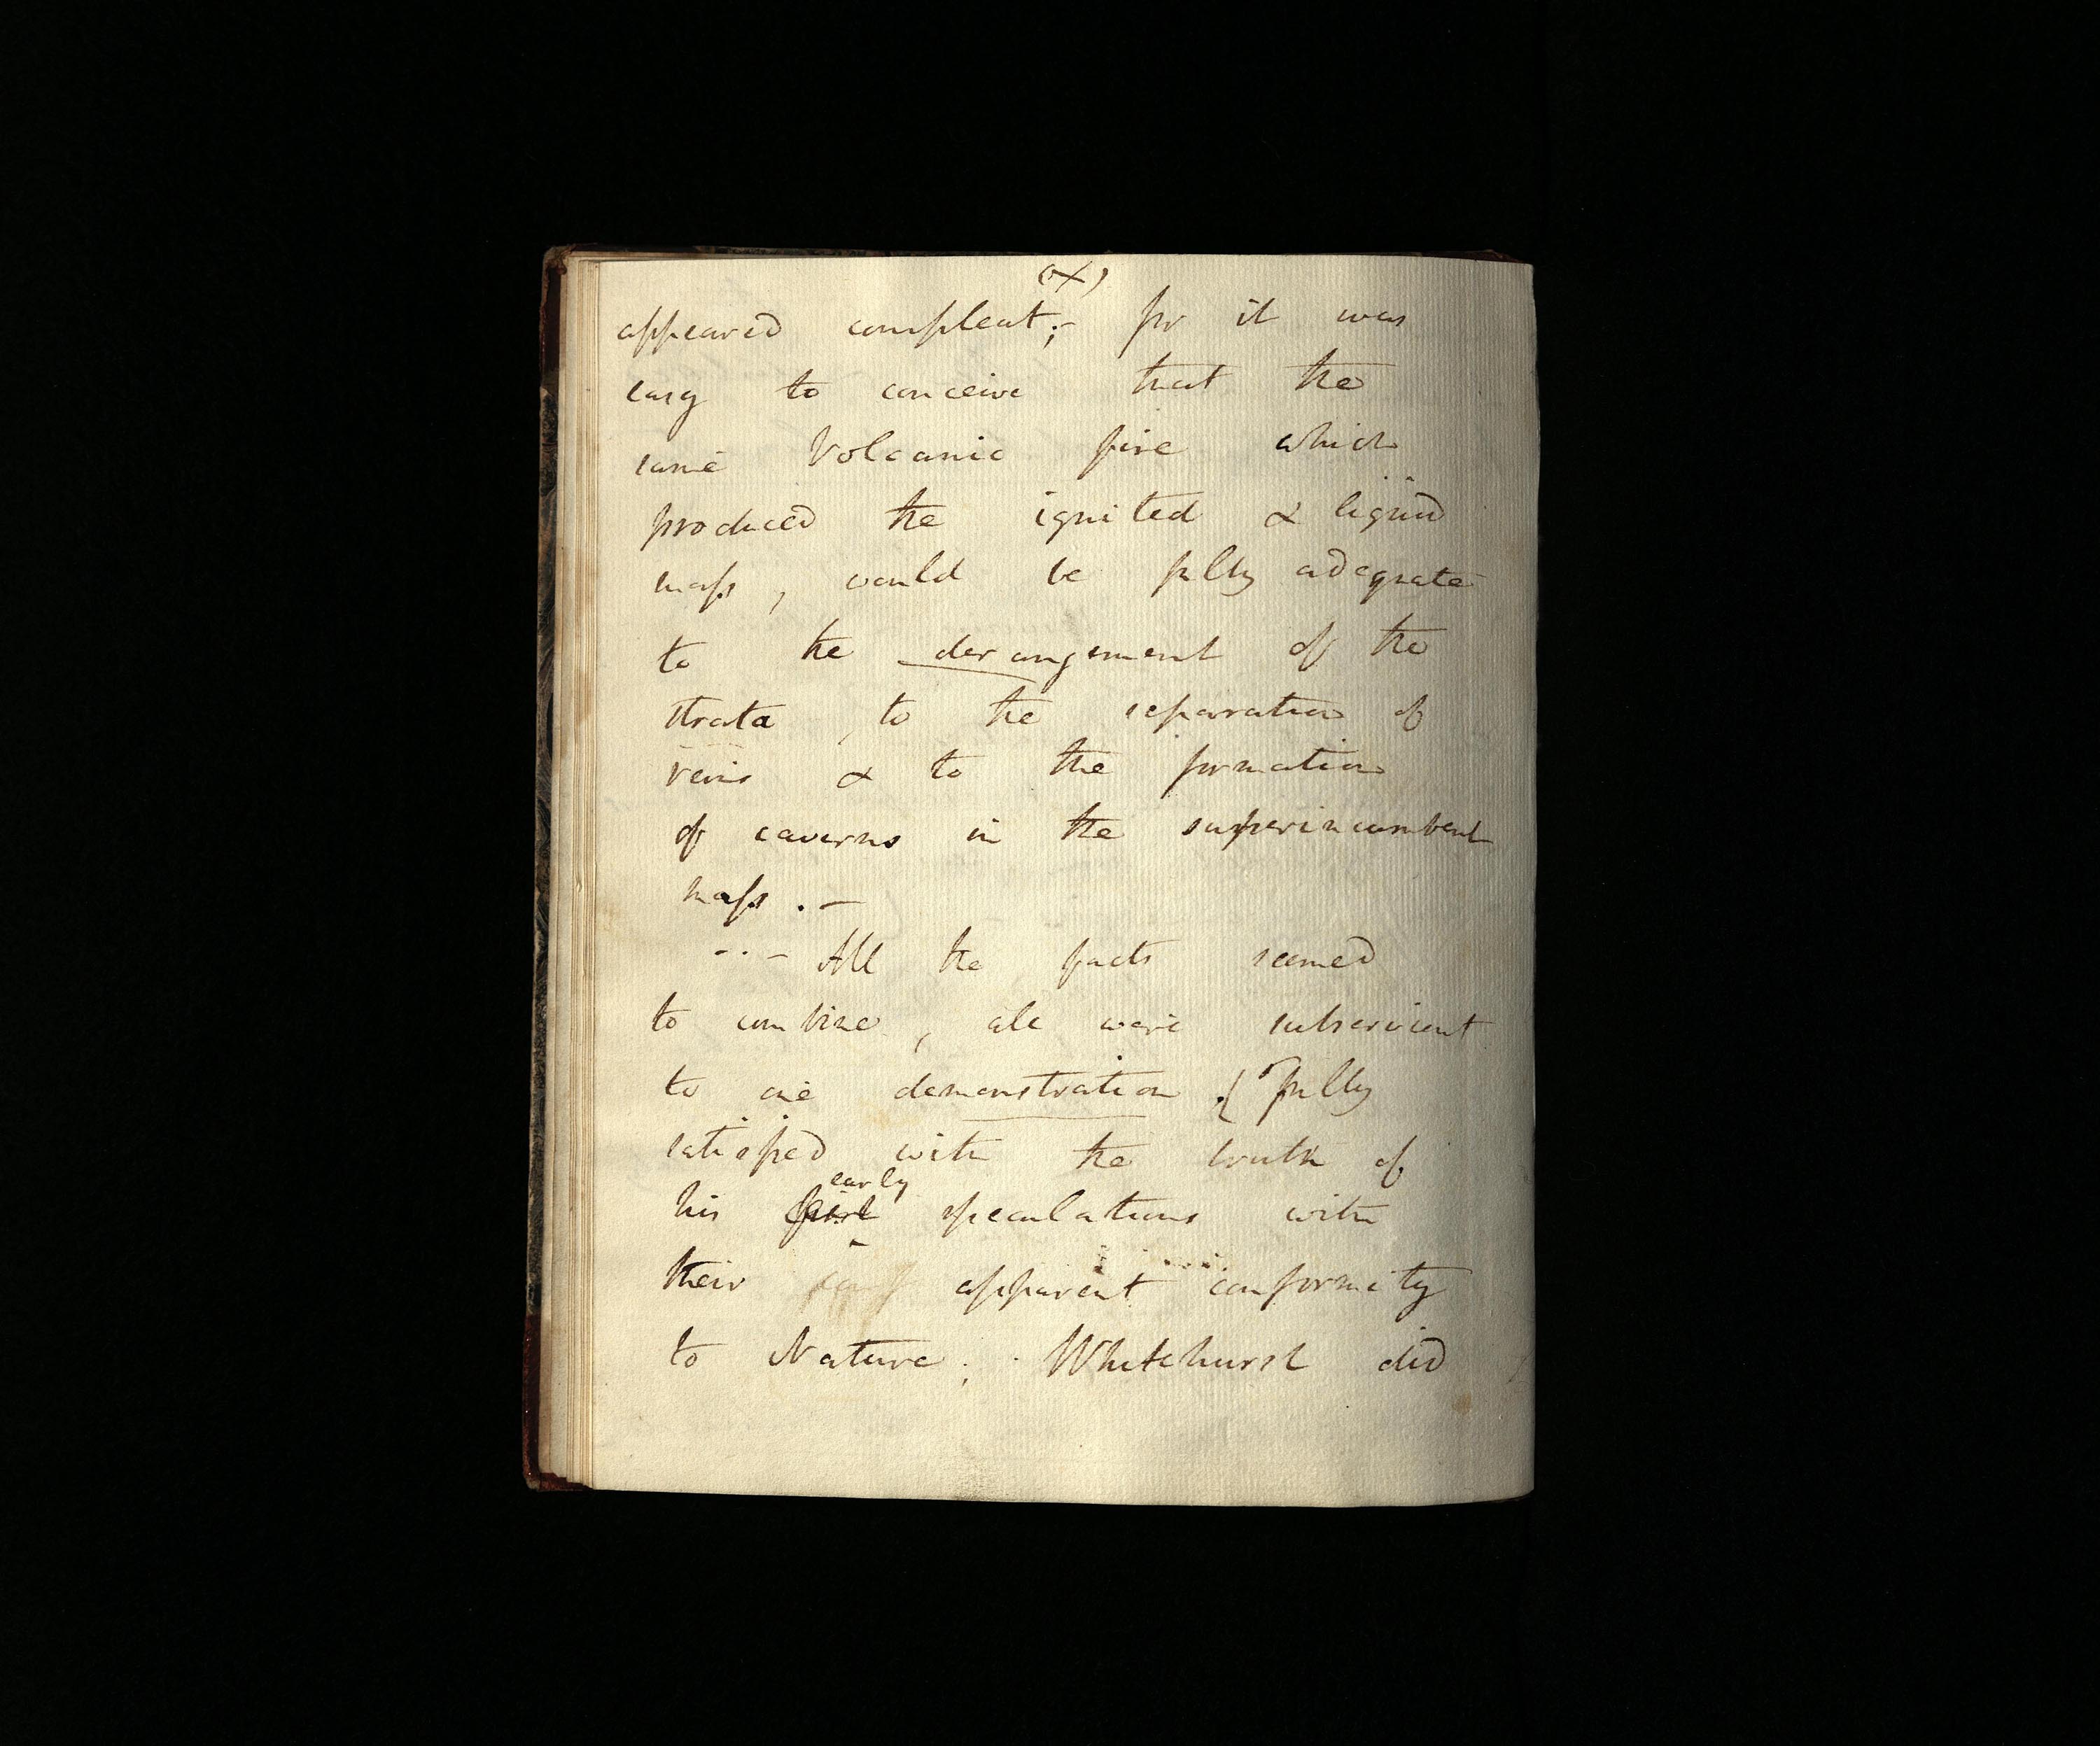 (x)
appeared compleat;- for it was
easy to conceive that the
same Volcanic fire which
produced the ignited & liquid
mass, would be fully adequate
to the derangement of the
strata, to the separation of
veins & to the formation
of caverns in the superincumbent
mass.-
--- All the facts seemed
to combine, all were subservient
to one demonstration. { fully
satisfied with the truth of
early
his first speculations with
their apparent conformity
to Nature; Whitehurst did